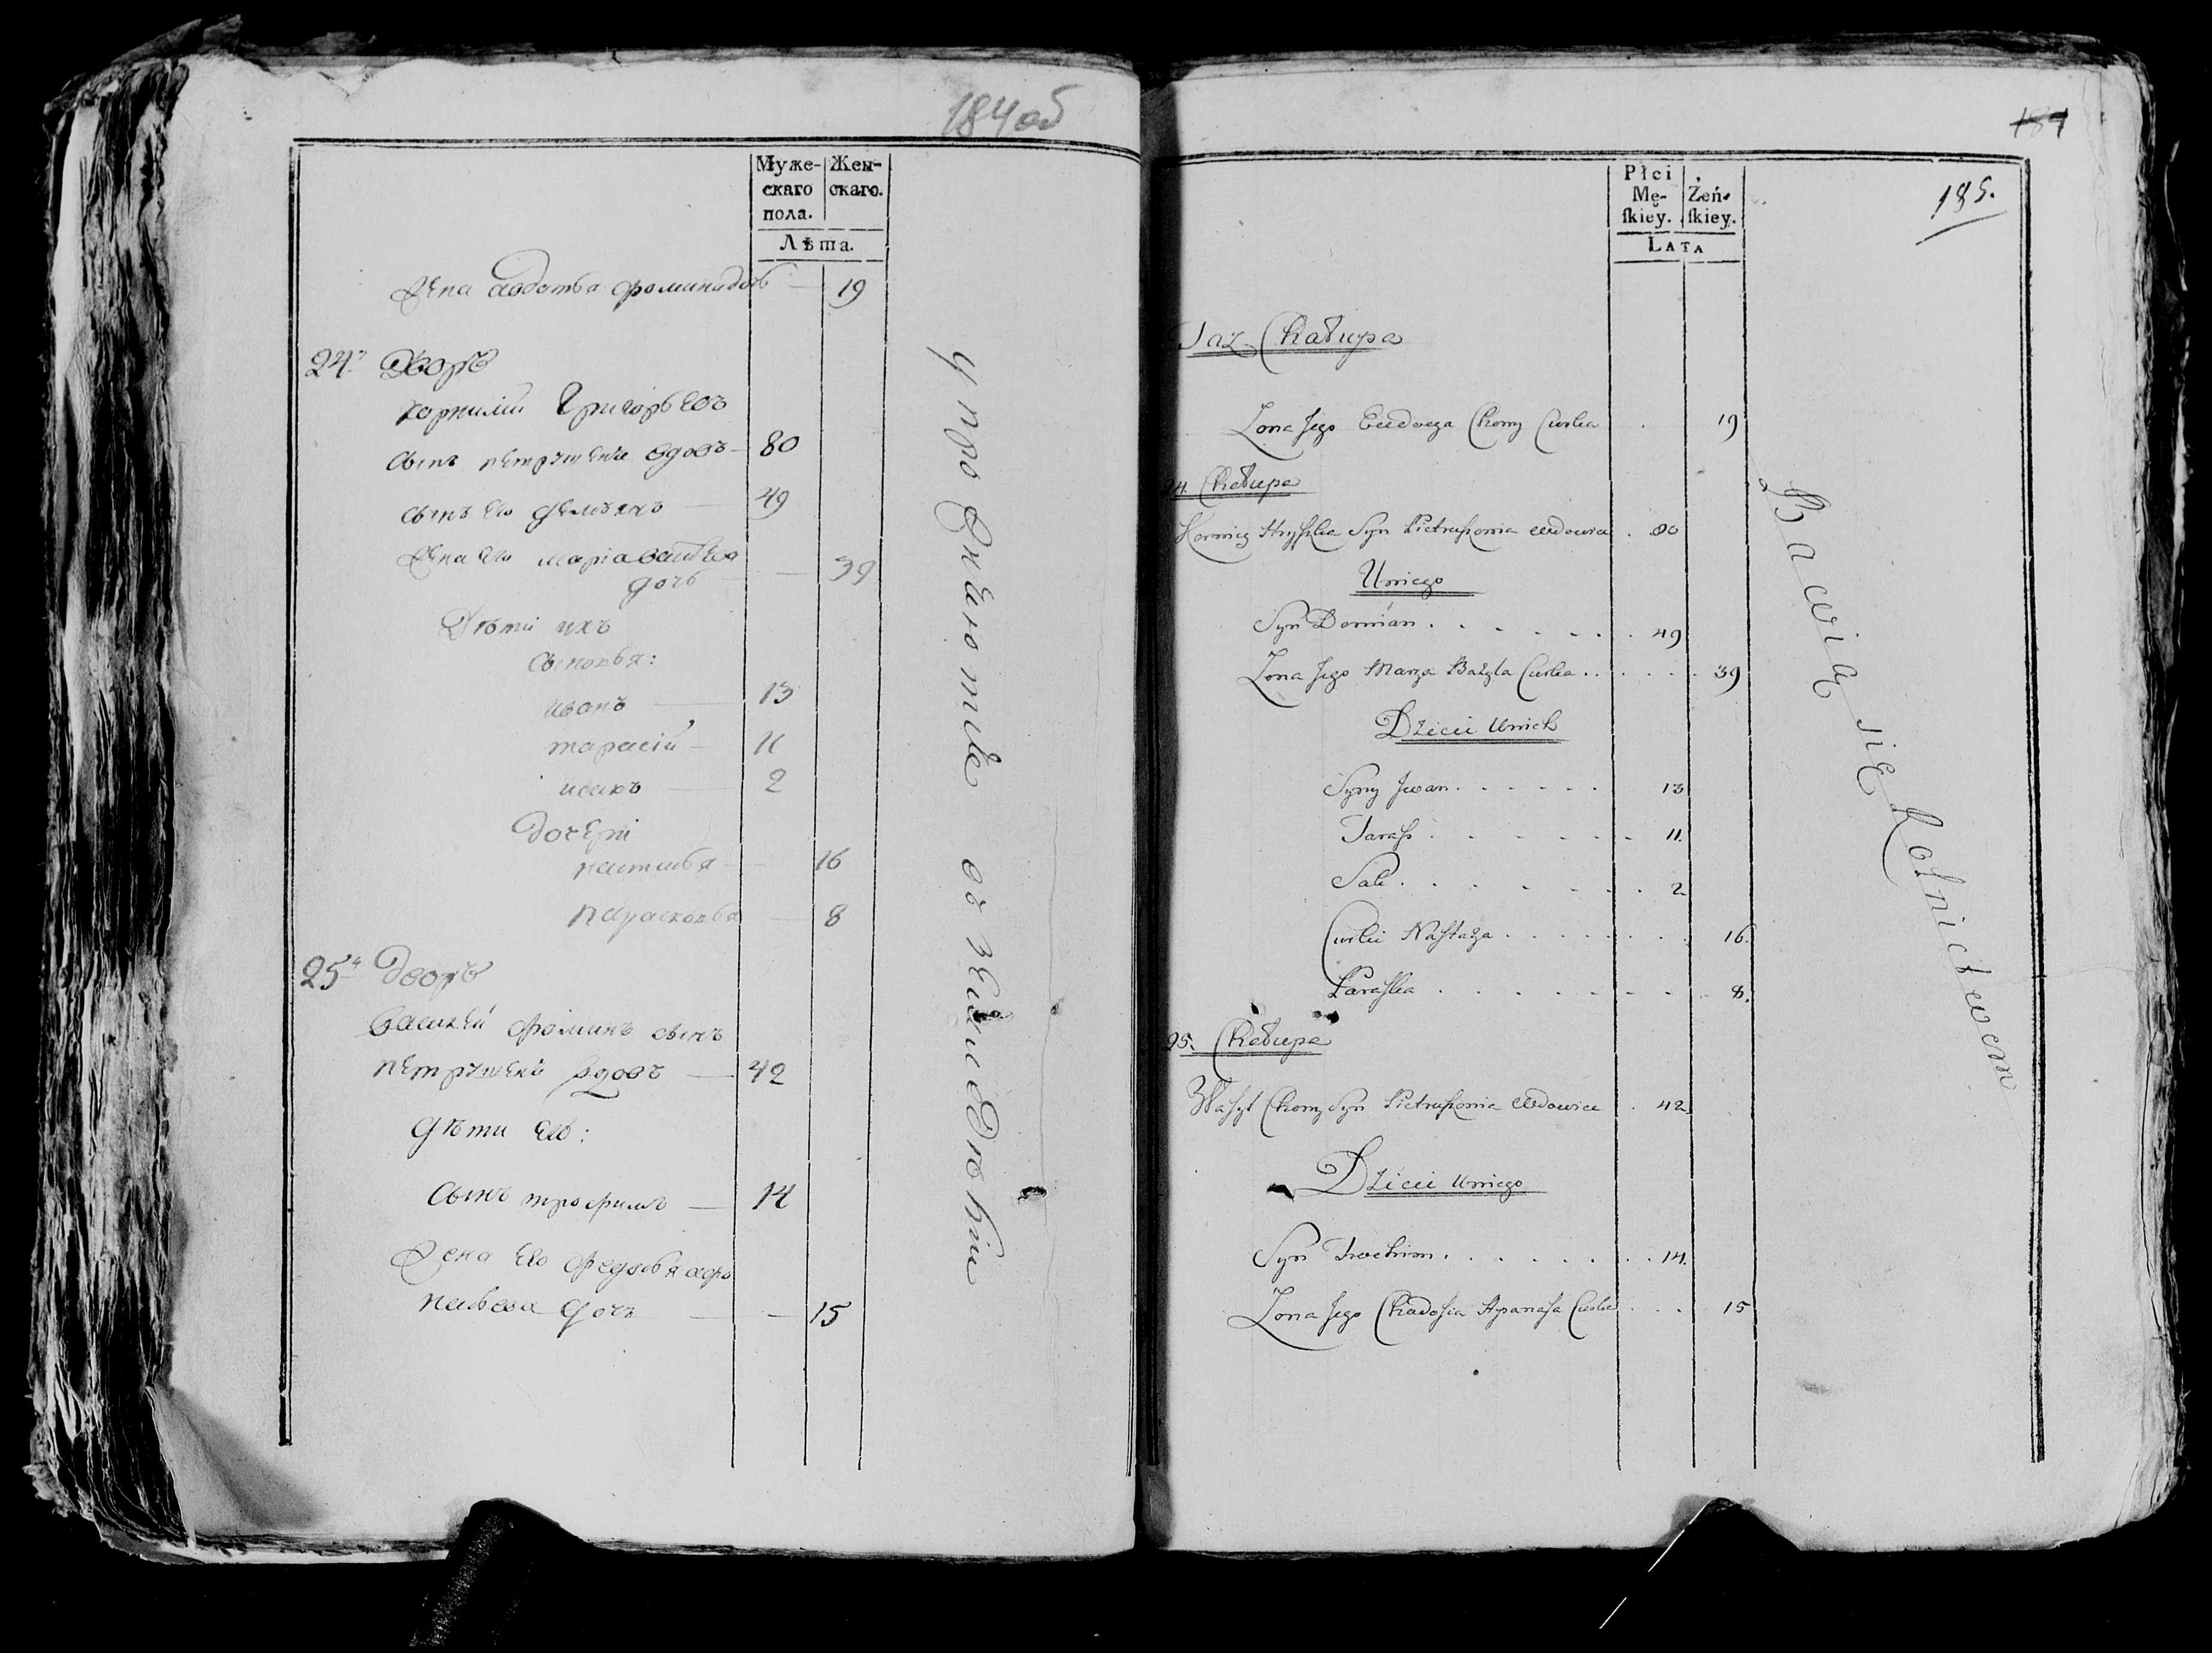 184 об
Муже-
скаго
пола.
Жен-
скаго.
Лѣта.
Жена Авдотья Фомина дочь — 19
24й Дворъ
Корнилій Григорьевъ
сынъ Петрушенко вдовъ — 80
сынъ его Демьянъ — 49
Жена его Марія Васильева
дочь — 39
Дѣти ихъ
Сыновья:
Иванъ — 13
Тарасій — 11
Исакъ — 2
Дочери
Настасья — 16
Парасковья — 8
25й Дворъ
Василей Фоминъ сынъ
Петрушенко вдовъ — 42
Дѣти его:
Сынъ Трофимъ — 14
Жена его Федосья Афо
насьева дочь — 15
Упражняются въ земледѣліи
184
185.
Płci
Mę-
skiey.
Żeń-
skiey.
LATA
Taż Chałupa
Zona Jego Ewdocya Chomy Curka . 19
24. Chałupa
Korniey Hryszka Syn Pietruszenia Wdowiec . 80
U niego
Syn Domian . . . . . . . 49
Zona Jego Marya Bazyla Curka . . . . . . 39
Dzieci U nich
Syny Jwan . . . . . . 13
Tarass . . . . . . . 11.
Sak . . . . . . . 2
Curki Nastazya . . . . . . . 16.
Paraska . . . . . . . . 8.
25. Chałupa
Wasyl Chomy Syn Pietruszenia Wdowiec . 42
Dzieci U niego
Syn Trochim . . . . . . . 14.
Zona Jego Chadosia Apanasa Curka . . . 15
Bawią się Rolnictwem